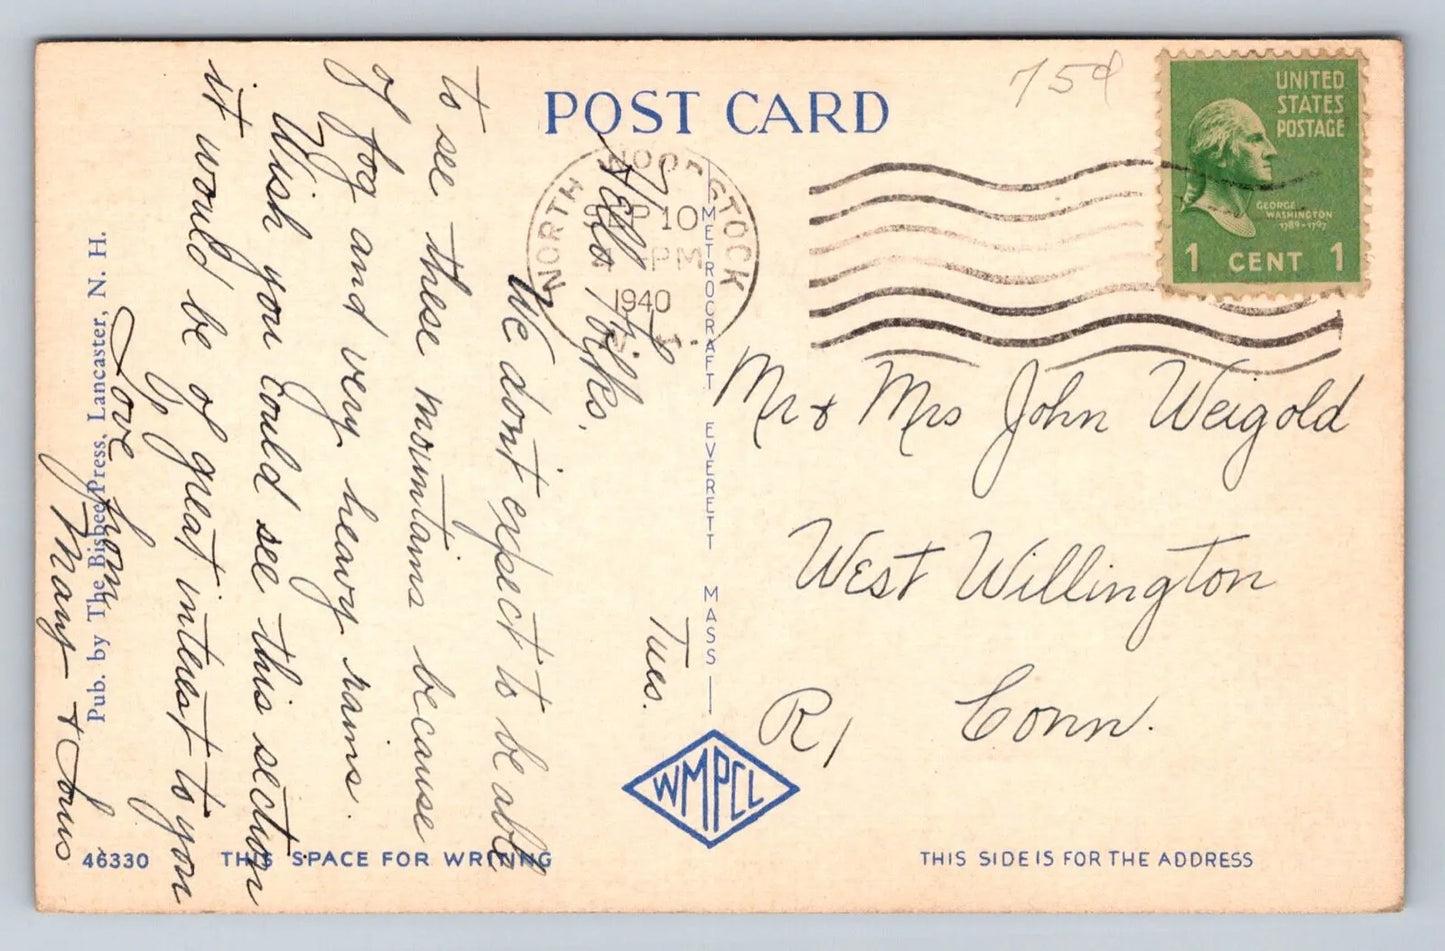 POST CARD
75¢
UNITED
STATES
POSTAGE
GEORGE
WASHINGTON
1789-1797
1 CENT 1
NORTH WOODSTOCK
SEP 10
4 - PM
1940
Tues.
Hello Folks,
We dont expect to be able
to see these mountains because
of fog and very heavy rains.
Wish you could see this section
it would be of great interest to you
Love from
Mary +
Mr & Mrs John Weigold
West Willington
Conn.
R 1
METROCRAFT EVERETT MASS
WMPCL
Pub. by The Bisbee Press, Lancaster, N. H.
46330
THIS SPACE FOR WRITING
THIS SIDE IS FOR THE ADDRESS